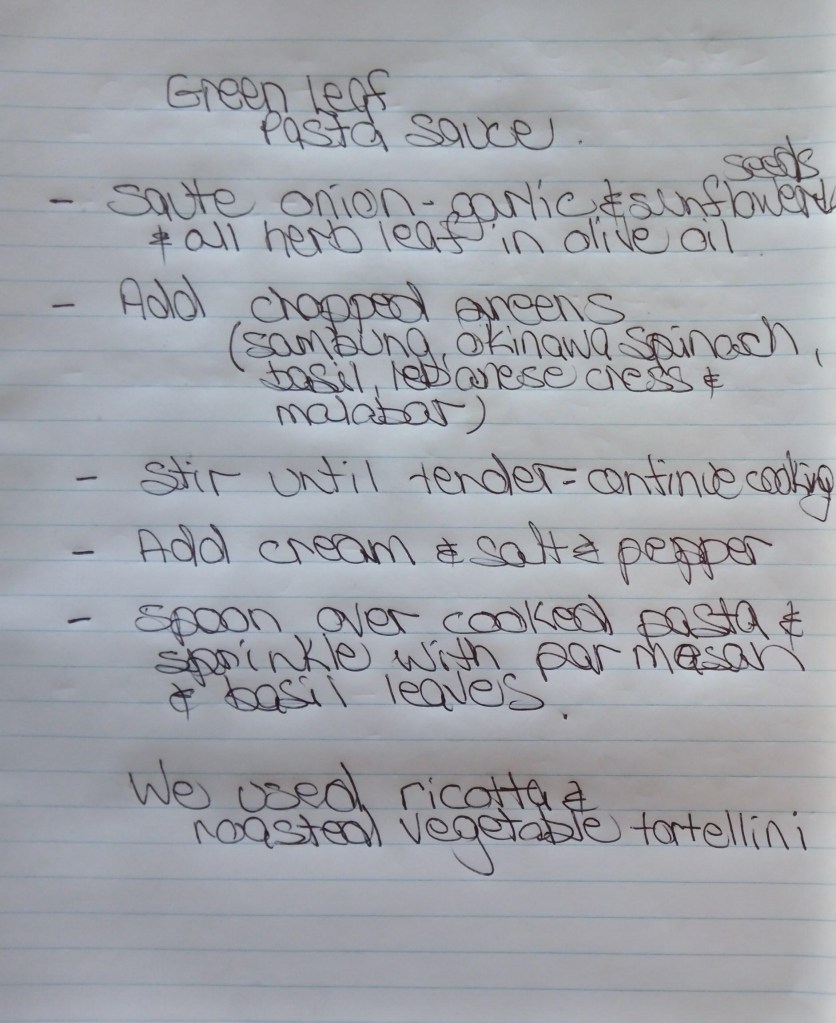 Green Leaf
Pasta Sauce.
seeds
- Saute onion - garlic & sunflower
& all herb leaf in olive oil
- Add chopped greens
(sambung, okinawa spinach,
basil, lebanese cress &
malabar)
- Stir until tender - continue cooking
- Add cream & salt & pepper
- Spoon over cooked pasta &
sprinkle with parmesan
& basil leaves.
We used ricotta &
roasted vegetable tortellini